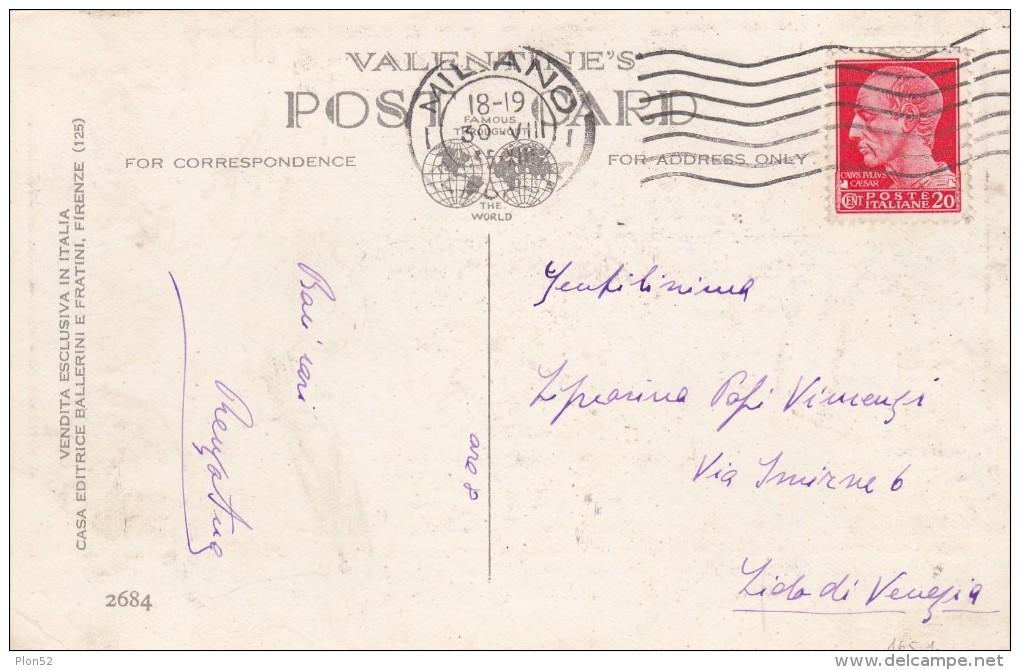 VALENTINE'S
POST CARD
FAMOUS
THROUGHOUT
THE
WORLD
FOR CORRESPONDENCE
FOR ADDRESS ONLY
MILANO
18-19
30 VIII
CAIVS IVLIVS
CAESAR
POSTE
CENT ITALIANE 20
VENDITA ESCLUSIVA IN ITALIA
CASA EDITRICE BALLERINI E FRATINI, FIRENZE (125)
2684
Baci cari
Gentilissima
Papi Vimenzi
Via Smirne 6
Lido di Venezia
Plon52
delcampe.net